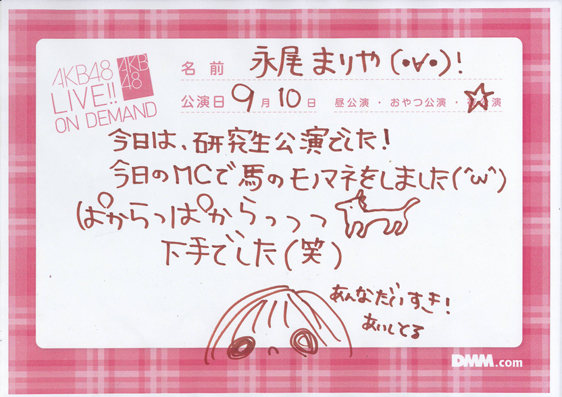 AKB48
LIVE!!
ON DEMAND
AKB
48
名前 永尾まりや(•∀•)!
公演日 9月10日 昼公演・おやつ公演・☆公演
今日は、研究生公演でした!
今日のMCで馬のモノマネをしました(^ω^)
ぱからっぱからっっっ
下手でした(笑)
あんなだいすき!
あいしとる
DMM.com